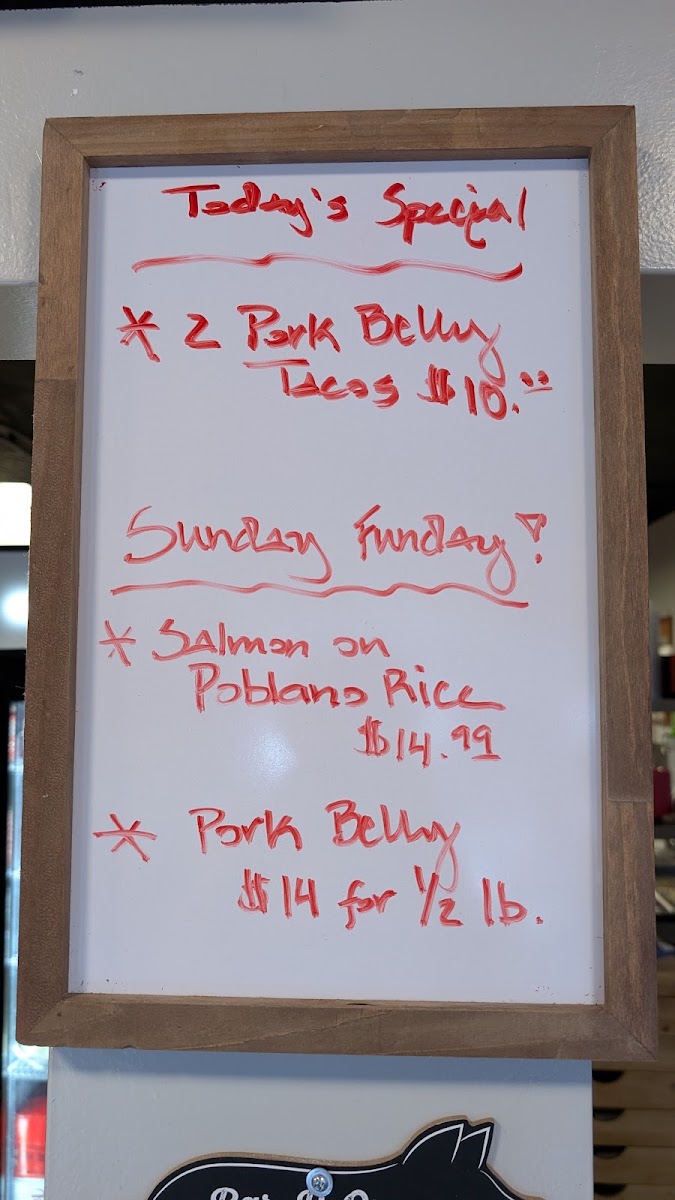 Today's Special
* 2 Pork Belly
Tacos $10.00
Sunday Funday!
* Salmon on
Poblano Rice
$14.99
* Pork Belly
$14 for 1/2 lb.